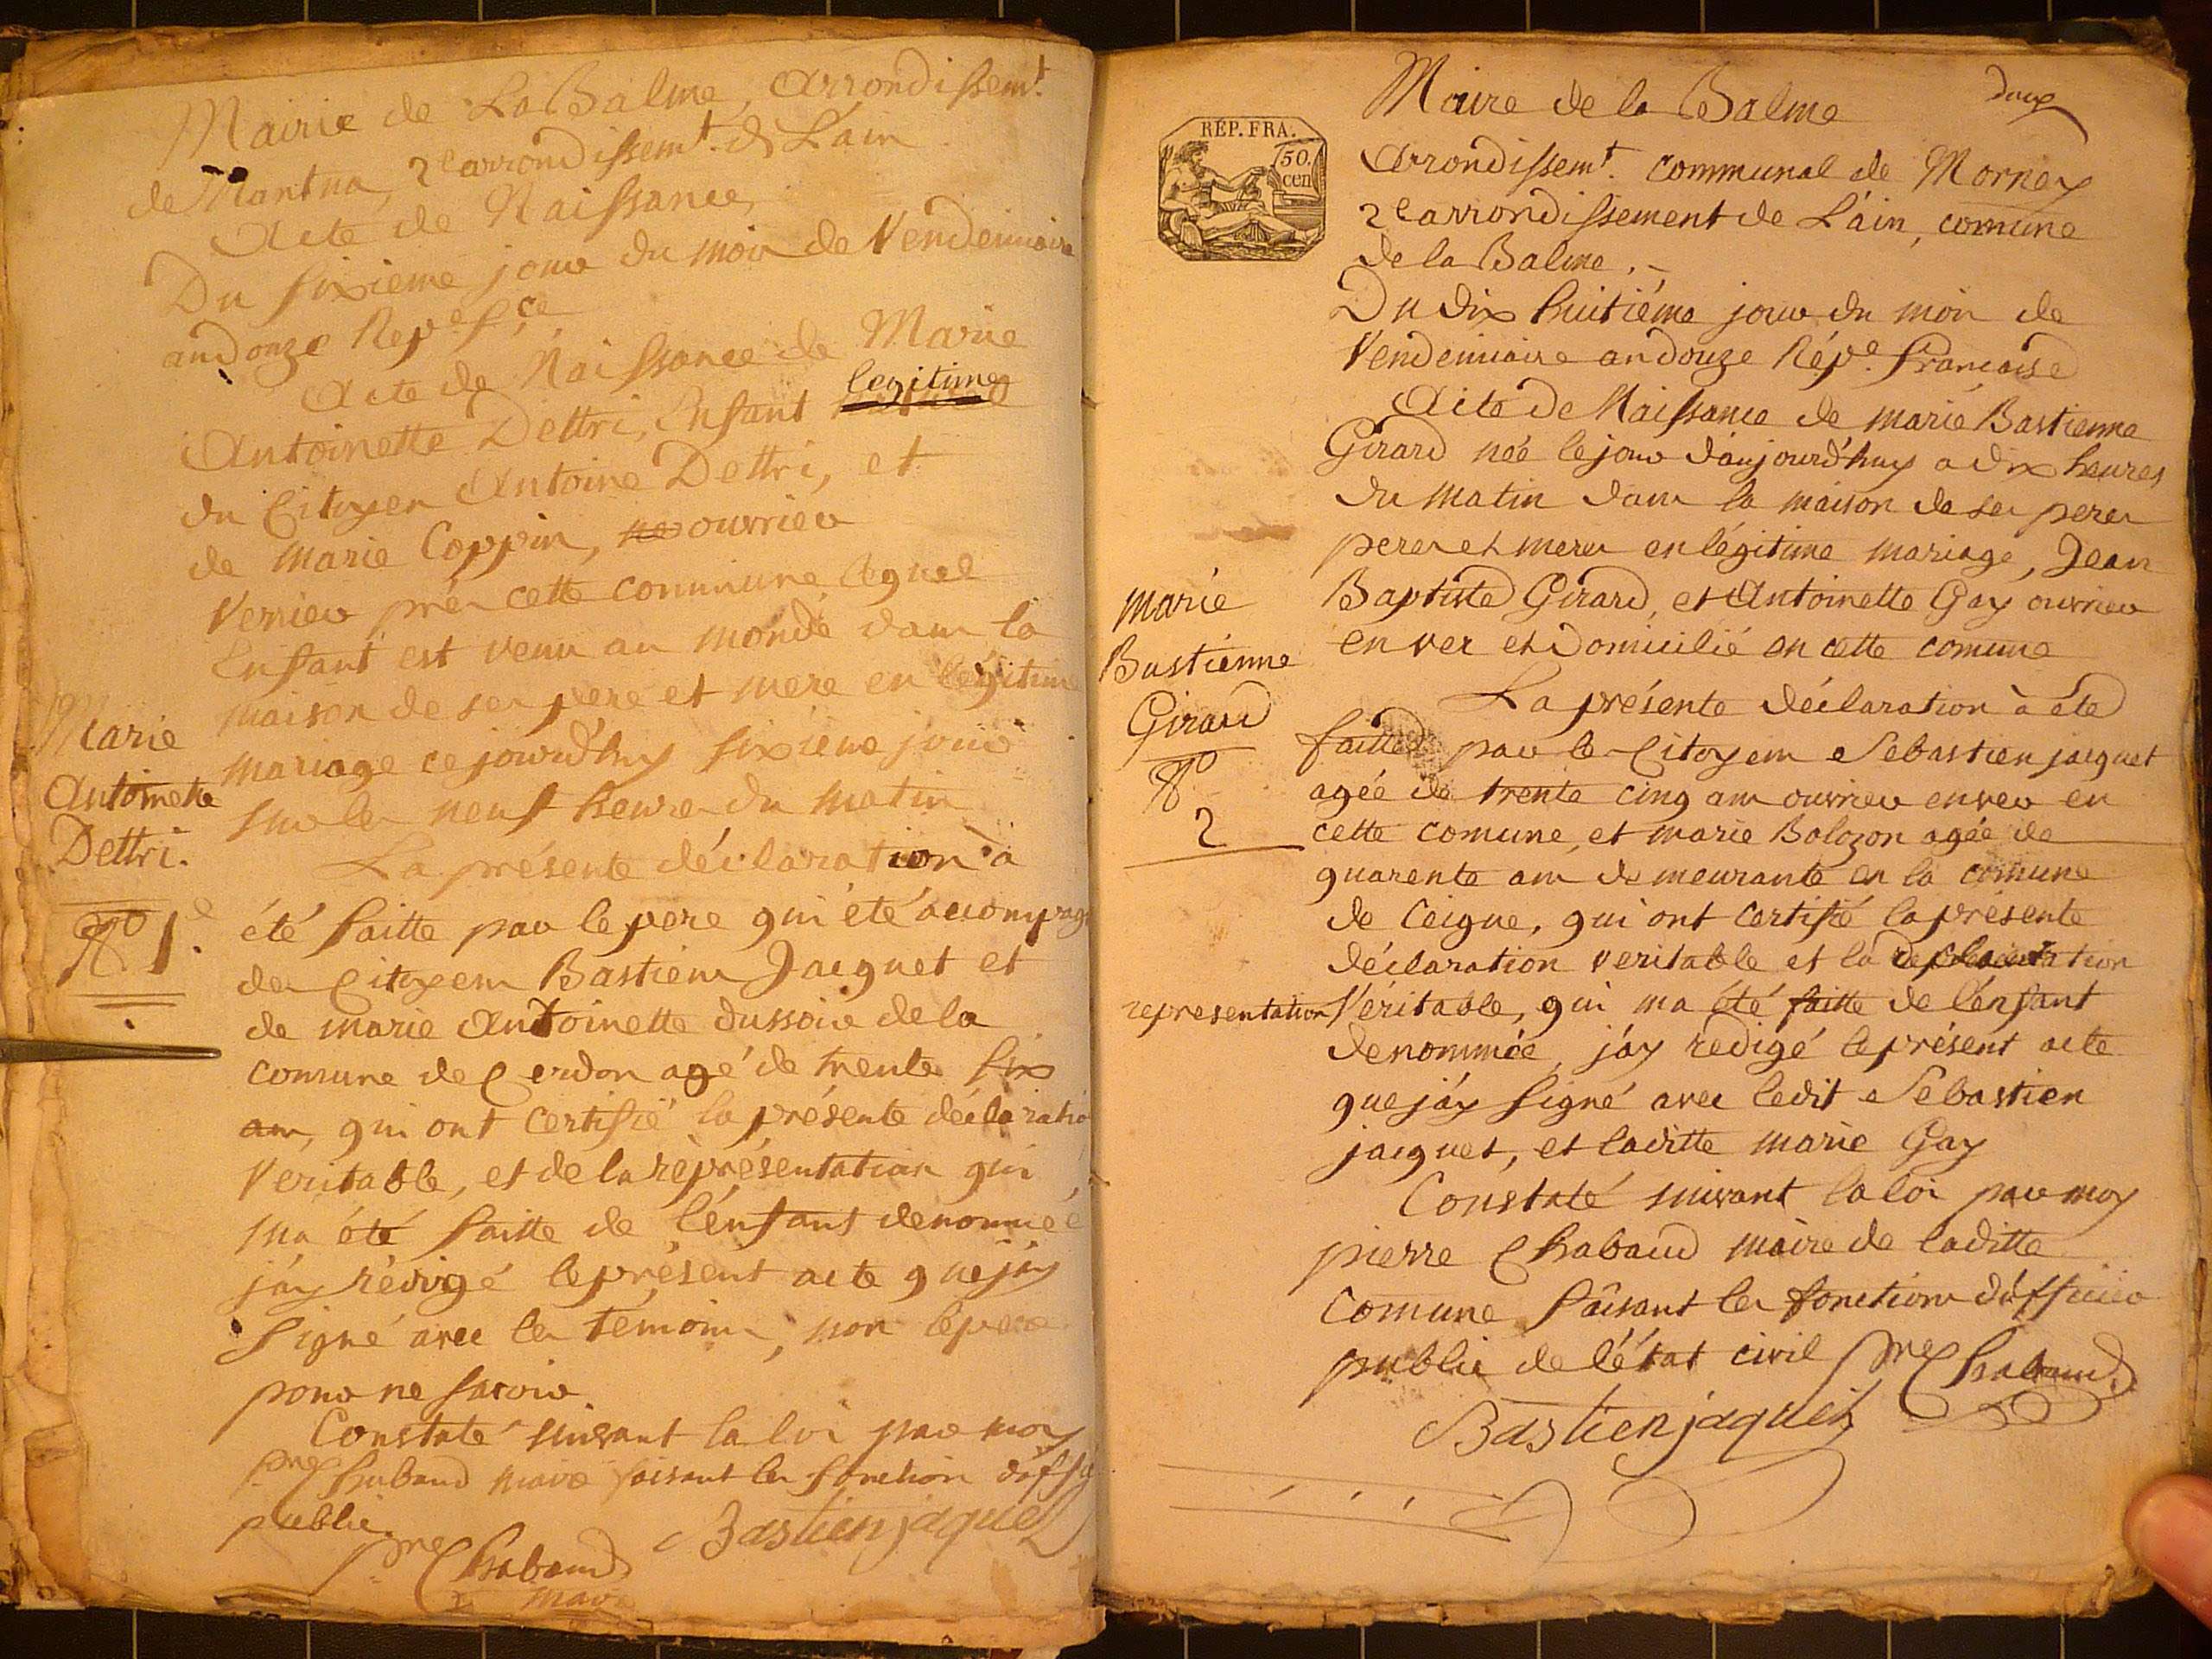 Mairie de La Balme, arrondissemt.
de Nantua, 2e arrondissemt. de L'ain
Acte de Naissance,
Du sixieme jour du mois de Vendemiaire
an douze Repe. fçe
Acte de Naissance de Marie
Antoinette Dettri, Enfant legitime
du Citoyen Antoine Dettri, et
de marie Coppin, ouvrier
Verrier près cette commune lequel
Enfant est venu au monde dans la
maison de ses pere et mere en légitime
mariage ce jourd'huy sixieme jour
sur les neuf heures du matin
La présente déclaration à
été faitte par le pere qui été accompagn
des Citoyens Bastien Jacquet et
de marie Antoinette dussoir de la
comune de Cerdon agé de trente six
ans, qui ont certifié la présente déclaratio
Veritable, et de la représentation qui
ma été faitte de l'énfant denommée
j'áy rédigé le présent acte que j'áy
signé avec les témoins, non le pere
pour ne savoir
Constaté suivant la loi par moy
Pre Chabaud maire faisant les fonction d'offi
public
Pre Chabaud
maire
Bastien jaquet
Marie
Antoinette
Dettri.
No 1e.
deux
RÉP. FRA.
50.
cen
Maire de la Balme
Arrondissemt. communal de Mornay
2e arrondissement de L'áin, comune
de la Balme.
Du dix huitiéme jour du mois de
Vendemiaire an douze Répe. française
Acte de Naissance de marie Bastienne
Girard née le jour d'aujourd'huy a dix heures
du matin dans la maison de ses peres
peres et meres en légitime mariage, Jean
Baptiste Girard, et Antoinette Gay ouvrier
en ver et domicilié en cette comune
La présente déclaration à été
faitte par le Citoyen Sebastien jacquet
agée de trente cinq ans ouvrier en ver en
cette comune, et marie Bolozon agée de
quarente ans demeurante en la comune
de Ceigne, qui ont certifié la présente
déclaration veritable et la
representation
Véritable, qui ma été faitte de l'énfant
denommée, j'áy redigé le présent acte
que j'áy signé avec ledit Sebastien
jacquet, et laditte marie Gay
Constaté suivant la loi par moy
pierre Chabaud maire de laditte
Comune faisant les fonctions d'officier
public de l'état civil Pre Chabaud
Bastien jaquet
marie
Bastienne
Girard
No
2